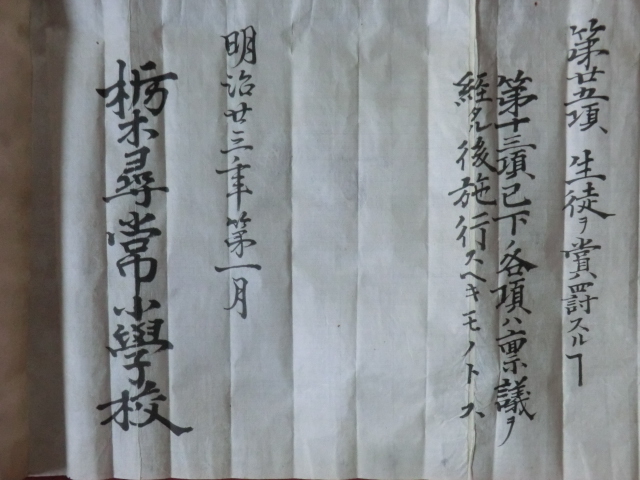 第廿五項 生徒ヲ賞罰スルヿ
第十三項已下ノ各項ハ稟議ヲ
経タル後施行スヘキモノトス
明治廿三年第一月
栃木尋常小學校